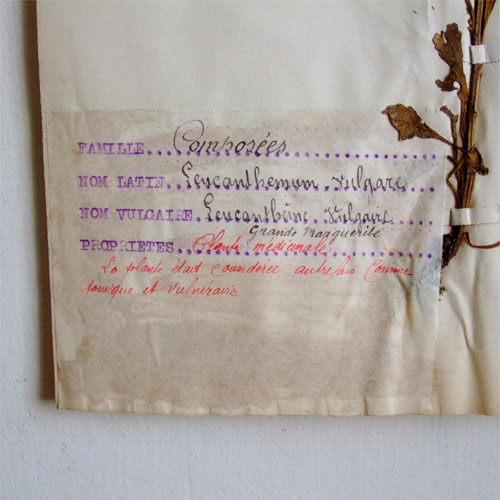 FAMILLE...Composées
NOM LATIN..Leucanthemum.Vulgare
NOM VULGAIRE.Leucanthème Vulgaire
Grande Marguerite
PROPRIETES...Plante médicinale
La plante était considérée autrefois comme
tonique et vulnéraire